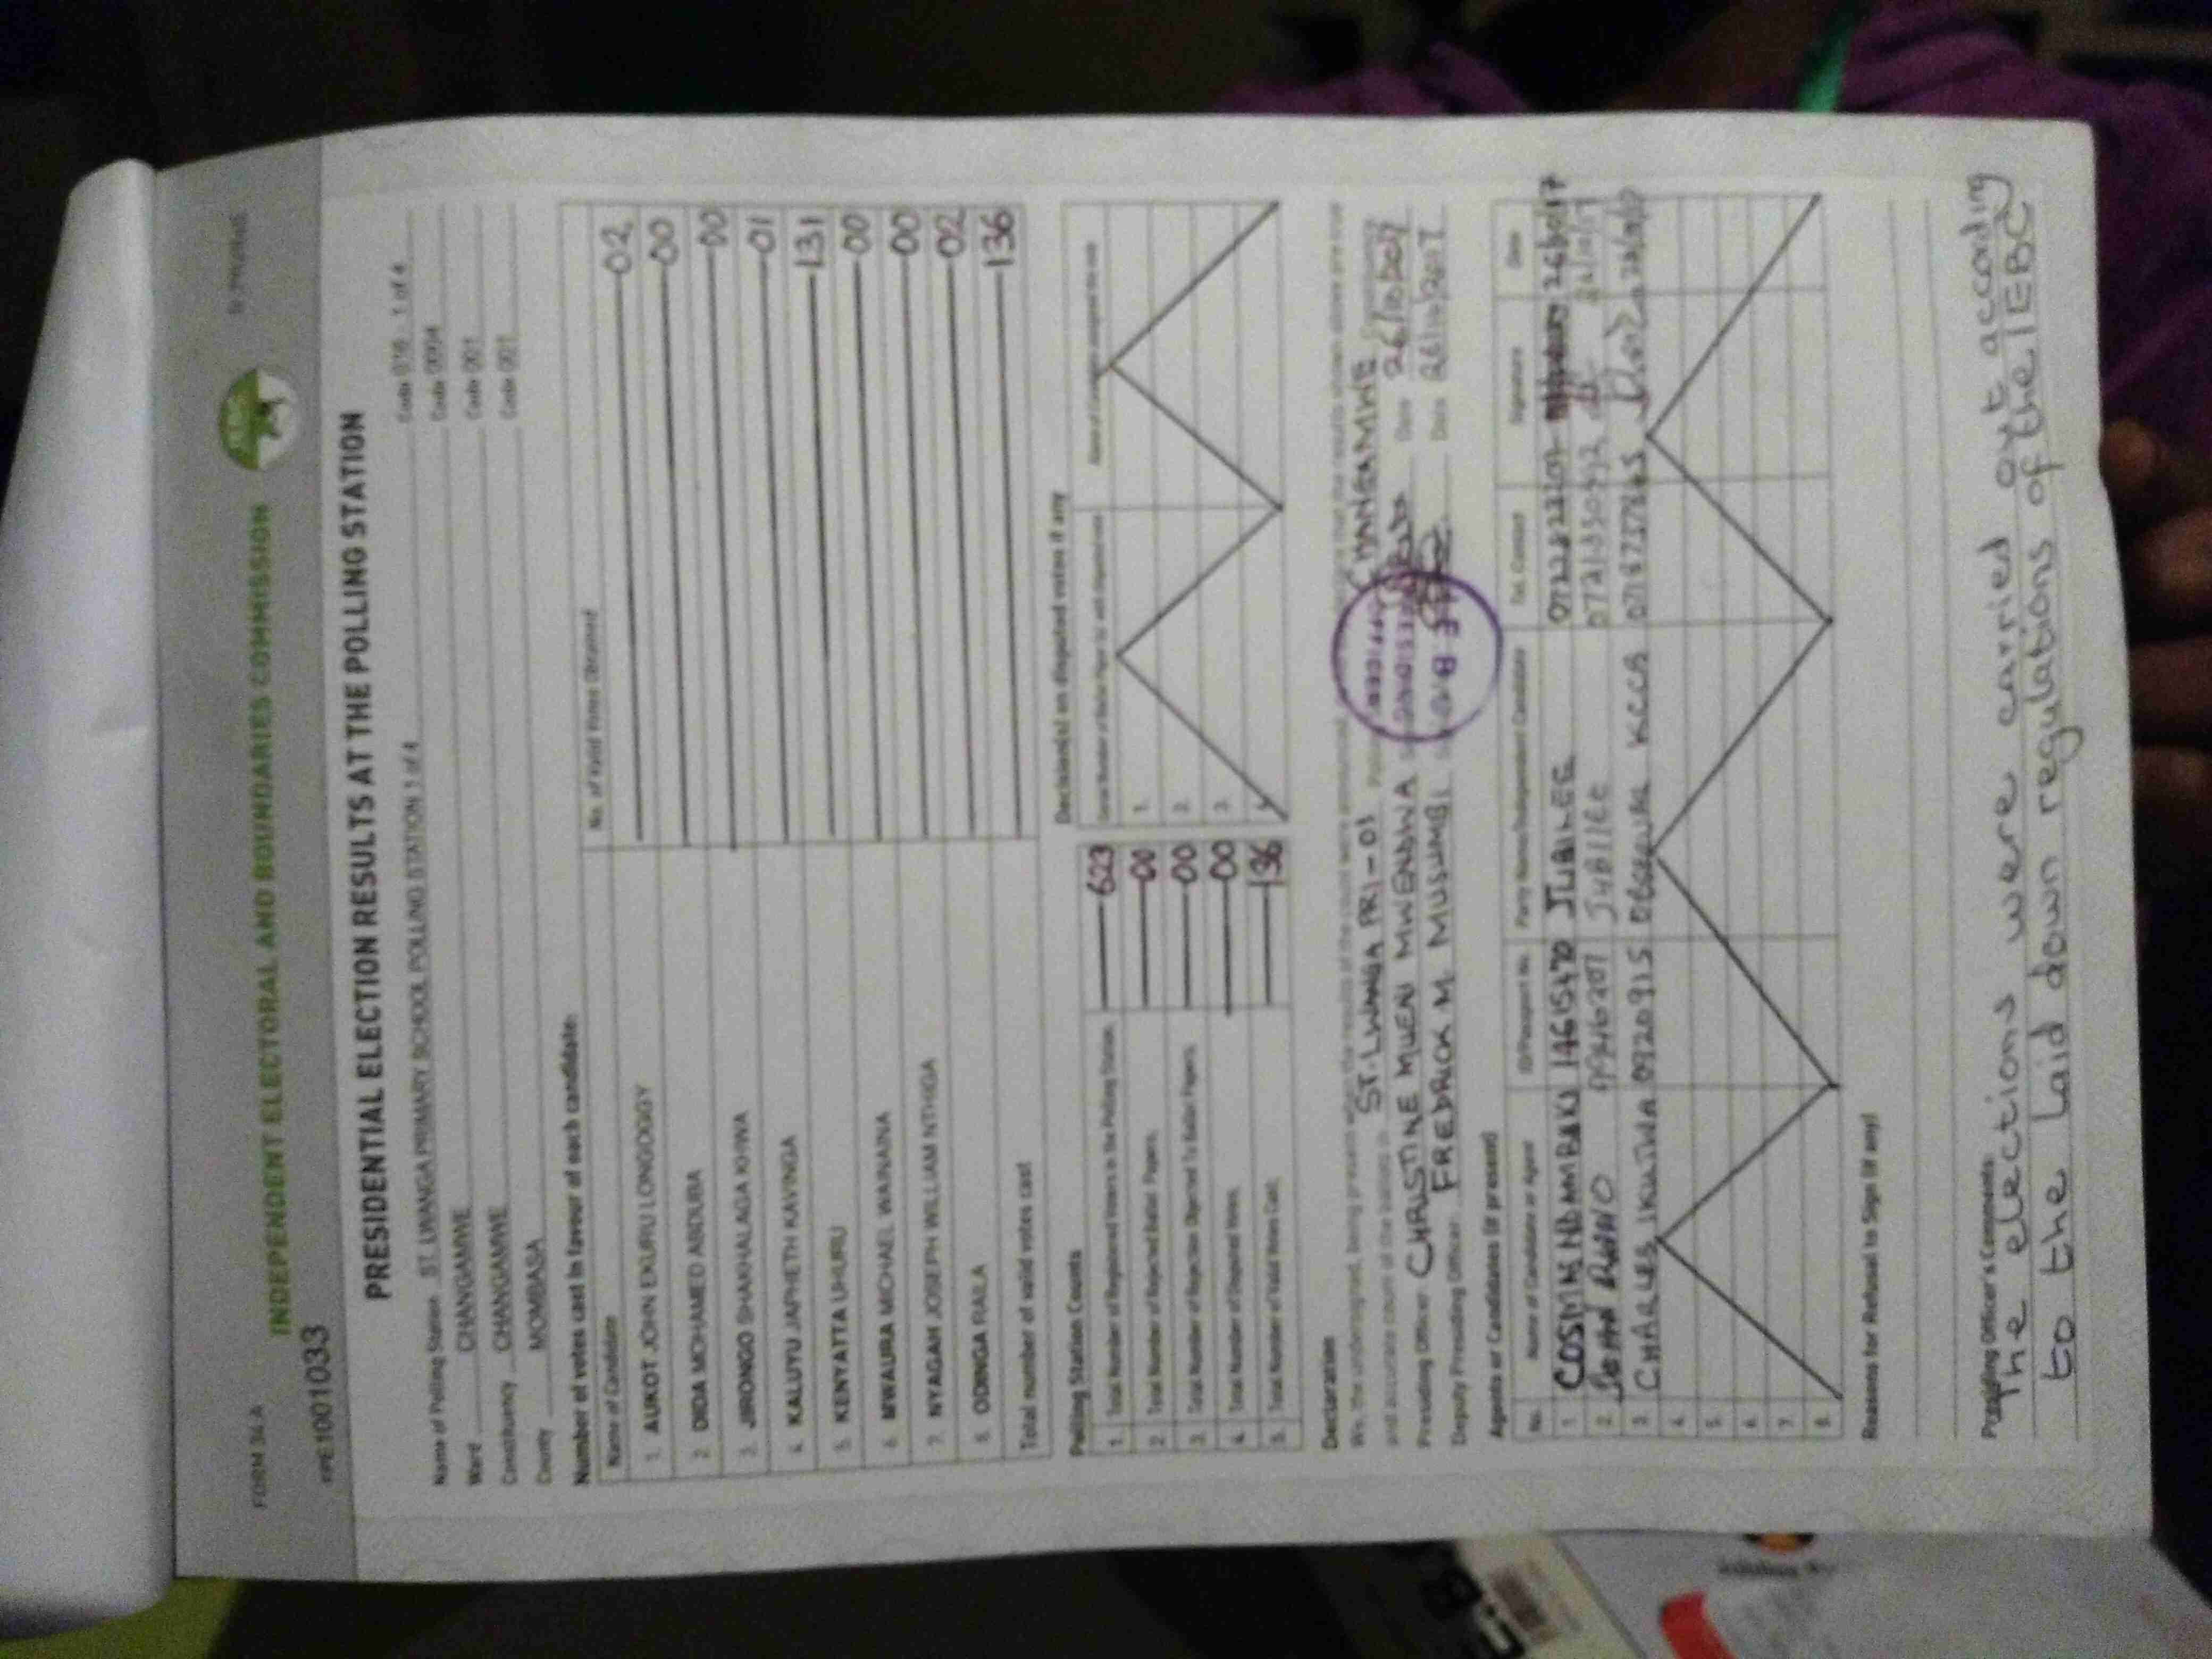 FORM 34A
INDEPENDENT ELECTORAL AND BOUNDARIES COMMISSION
PE1001033
PRESIDENTIAL ELECTION RESULTS AT THE POLLING STATION
Name of Polling Station ST. LWANGA PRIMARY SCHOOL POLLING STATION 1 of 4 Code 018 - 1 of 4
Ward CHANGAMWE Code 0004
Constituency CHANGAMWE Code 001
County MOMBASA Code 001
Number of votes cast in favour of each candidate:
Name of Candidate No. of Valid Votes Obtained
1. AUKOT JOHN EKURU LONGOGGY 02
2. DIDA MOHAMED ABDUBA 00
3. JIRONGO SHAKHALAGA KHWA 00
4. KALUYU JAPHETH KAVINGA 01
5. KENYATTA UHURU 131
6. MWAURA MICHAEL WAINAINA 00
7. NYAGAH JOSEPH WILLIAM NTHIGA 00
8. ODINGA RAILA 02
Total number of valid votes cast 136
Polling Station Counts
1. Total Number of Registered Voters in the Polling Station 623
2. Total Number of Rejected Ballot Papers 00
3. Total Number of Rejection Objected To Ballot Papers 00
4. Total Number of Disputed Votes 00
5. Total Number of Valid Votes Cast 136
Decision(s) on disputed votes if any
1.
2.
3.
4.
Declaration
We, the undersigned, being present when the results of the count were announced,
and accurate count of the ballots in ST. LWANGA PRI-01 CHANGAMWE
Presiding Officer CHRISTINE MUENI MWENDWA Date 26/10/2017
Deputy Presiding Officer FREDRICK M. MUSUMBI Date 26/10/2017
Agents or Candidates (if present)
No. Name of Candidate or Agent ID/Passport No. Party Name/Independent Candidate Tel. Contact Signature Date
1. COSMINE NDAMBAKI 14615470 JUBILEE 26/10/17
2. JUBILEE
3. CHARLES 0920915 OBSERVER KCCB
4.
5.
6.
7.
8.
Reasons for Refusal to Sign (if any)
Presiding Officer's Comments:
The elections were carried out according
to the laid down regulations of the IEBC